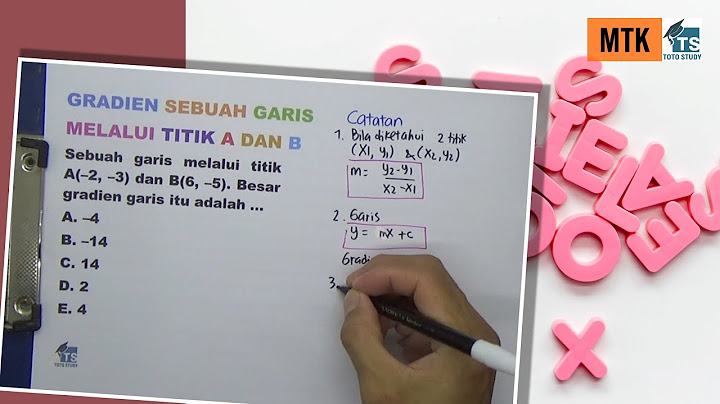 MTK
TS
TOTO STUDY
GRADIEN SEBUAH GARIS
MELALUI TITIK A DAN B
Sebuah garis melalui titik
A(–2, –3) dan B(6, –5). Besar
gradien garis itu adalah ...
A. –4
B. –14
C. 14
D. 2
E. 4
TS
TOTO STUDY
Catatan
1. Bila diketahui 2 titik
(x1, y1) & (x2, y2)
m = y2-y1
x2-x1
2. Garis
y = mx + c
3.